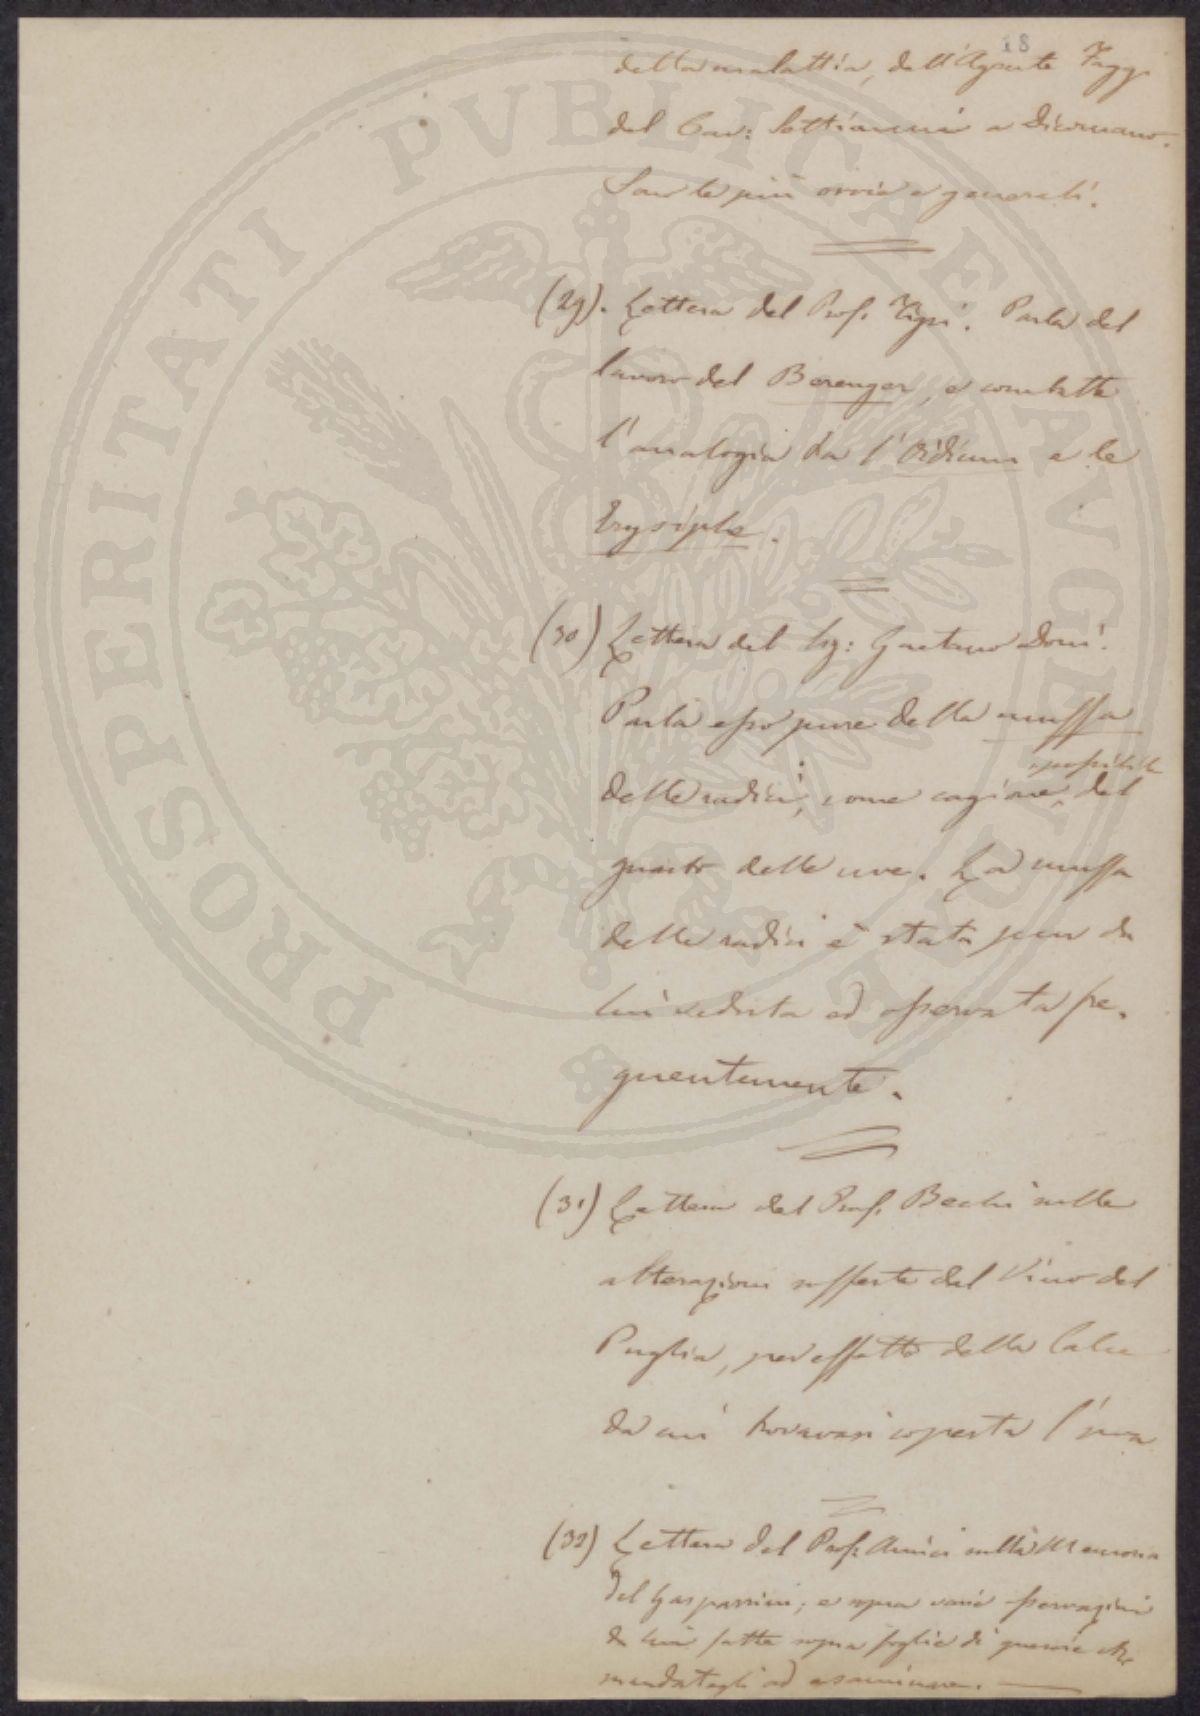 18
della malattia, dell'Agente Faggi
del Cav: Settimanni a Dicomano.
Son le più ovvie e generali.
(29). Lettera del Prof. Tigri. Parla del
lavoro del Berenger, e combatte
l'analogia tra l'Oidium e le
Erysiphe.
(30) Lettera del Sig: Gaetano Doni.
Parla esso pure della muffa
delle radici, come cagione del
guasto delle uve. La muffa
delle radici è stata pure da
lui veduta ed osservata fre-
quentemente.
(31) Lettera del Prof. Bechi sulle
alterazioni sofferte dal Vino del
Puglia, per effetto della Calce
da cui trovavasi coperta l'uva
(32) Lettera del Prof. Amici sulla Memoria
del Gasparrini; e sopra varie osservazioni
da lui fatte sopra foglie di quercie
mandategli ad esaminare.
PVBLICAE AVGENDAE
PROSPERITATI